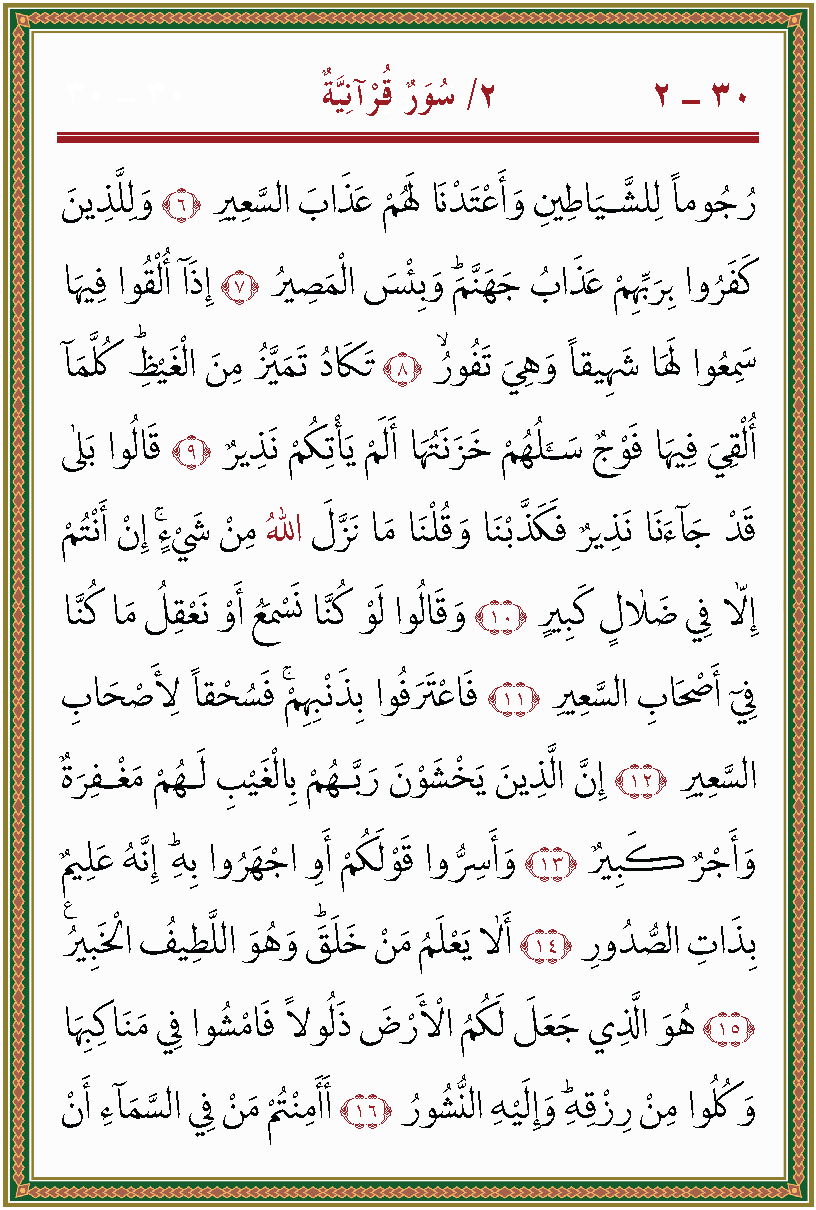 ٣٠ – ٢ ٢/ سُوَرٌ قُرْآنِيَّةٌ
رُجُوماً لِلشَّيَاطِينِ وَأَعْتَدْنَا لَهُمْ عَذَابَ السَّعِيرِ ﴿٦﴾ وَلِلَّذِينَ
كَفَرُوا بِرَبِّهِمْ عَذَابُ جَهَنَّمَۜ وَبِئْسَ الْمَصِيرُ ﴿٧﴾ إِذَآ أُلْقُوا فِيهَا
سَمِعُوا لَهَا شَهِيقاً وَهِيَ تَفُورُۙ ﴿٨﴾ تَكَادُ تَمَيَّزُ مِنَ الْغَيْظِۜ كُلَّمَآ
أُلْقِيَ فِيهَا فَوْجٌ سَأَلَهُمْ خَزَنَتُهَآ أَلَمْ يَأْتِكُمْ نَذِيرٌ ﴿٩﴾ قَالُوا بَلٰى
قَدْ جَآءَنَا نَذِيرٌ فَكَذَّبْنَا وَقُلْنَا مَا نَزَّلَ اللهُ مِنْ شَيْءٍۚ إِنْ أَنْتُمْ
إِلَّا فِي ضَلَالٍ كَبِيرٍ ﴿١٠﴾ وَقَالُوا لَوْ كُنَّا نَسْمَعُ أَوْ نَعْقِلُ مَا كُنَّا
فِيٓ أَصْحَابِ السَّعِيرِ ﴿١١﴾ فَاعْتَرَفُوا بِذَنْبِهِمْۚ فَسُحْقاً لِأَصْحَابِ
السَّعِيرِ ﴿١٢﴾ إِنَّ الَّذِينَ يَخْشَوْنَ رَبَّهُمْ بِالْغَيْبِ لَهُمْ مَغْفِرَةٌ
وَأَجْرٌ كَبِيرٌ ﴿١٣﴾ وَأَسِرُّوا قَوْلَكُمْ أَوِ اجْهَرُوا بِهِۜ إِنَّهُ عَلِيمٌ
بِذَاتِ الصُّدُورِ ﴿١٤﴾ أَلَا يَعْلَمُ مَنْ خَلَقَۜ وَهُوَ اللَّطِيفُ الْخَبِيرُ ع
﴿١٥﴾ هُوَ الَّذِي جَعَلَ لَكُمُ الْأَرْضَ ذَلُولاً فَامْشُوا فِي مَنَاكِبِهَا
وَكُلُوا مِنْ رِزْقِهِۜ وَإِلَيْهِ النُّشُورُ ﴿١٦﴾ أَأَمِنْتُمْ مَنْ فِي السَّمَآءِ أَنْ